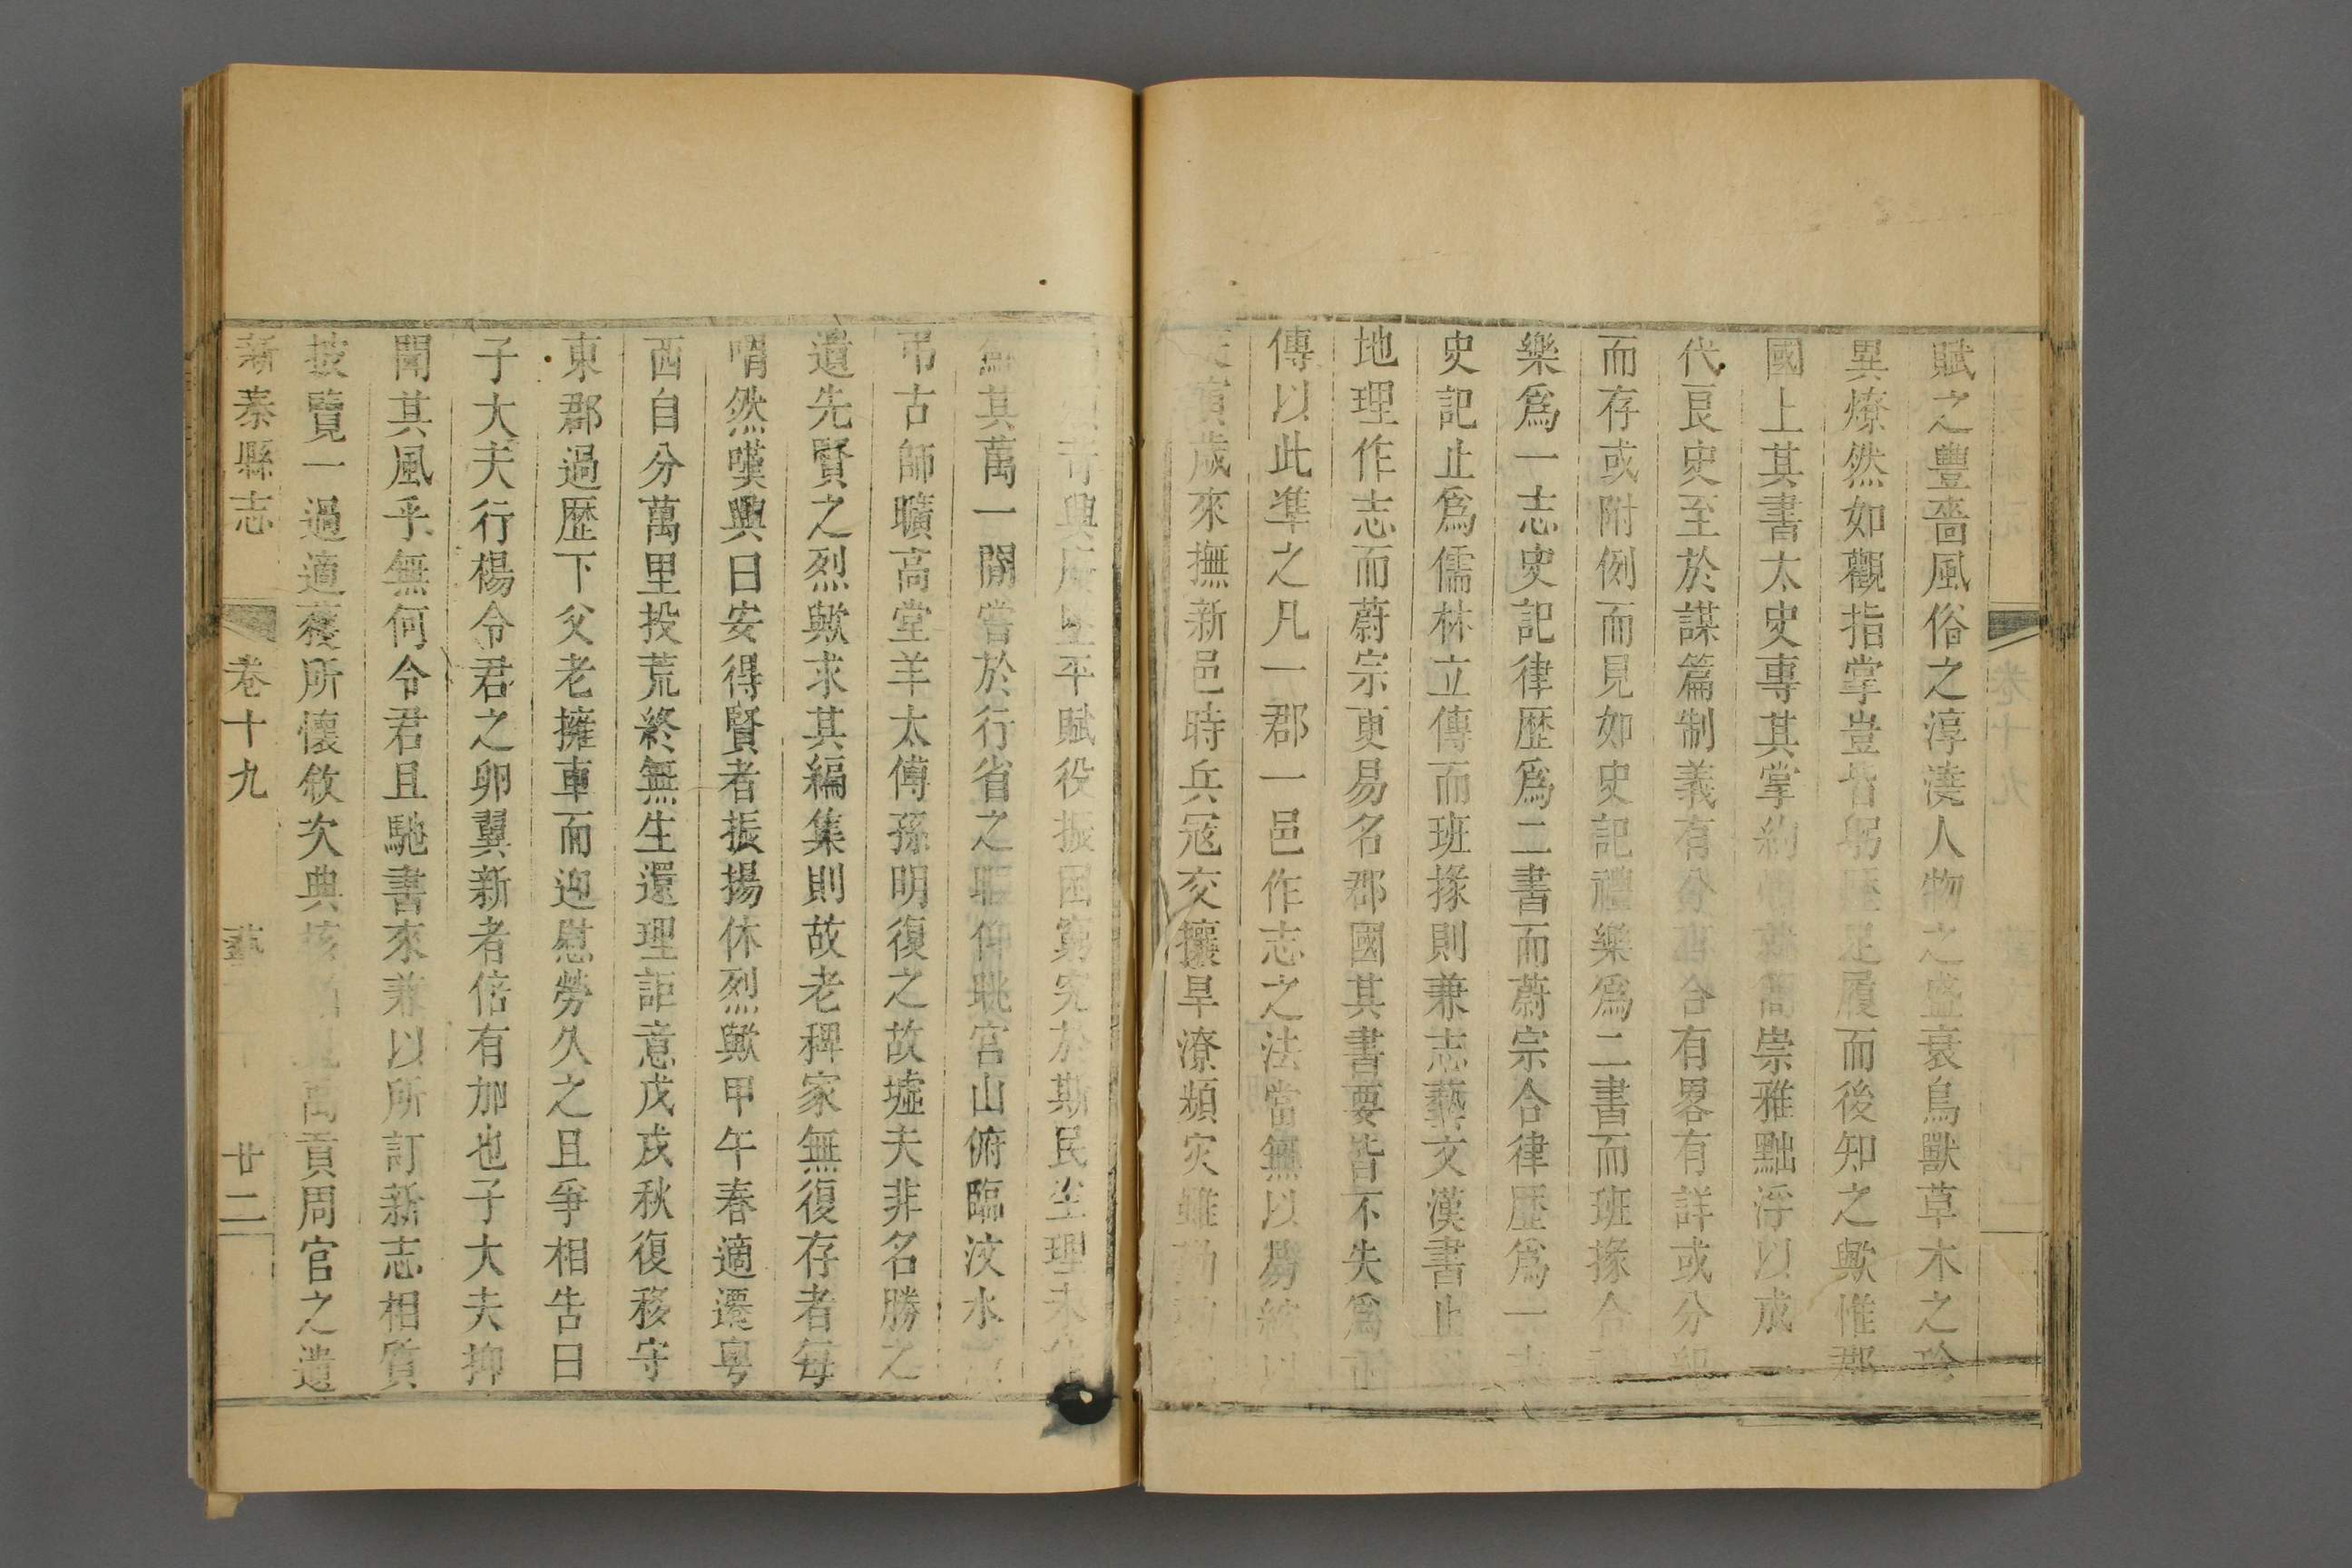 賦之豐嗇風俗之淳澆人物之盛衰鳥獸草木之
異燎然如觀指掌豈皆躬歷足履而後知之歟惟郡
國上其書太史專其掌約 簡崇雅黜浮以成一
代良史至於謀篇制義有分有合有畧有詳或分
而存或附例而見如史記禮樂爲二書而班掾合
樂爲一志史記律歷爲二書而蔚宗合律歷爲一
史記止爲儒林立傳而班掾則兼志藝文漢書止
地理作志而蔚宗更易名郡國其書要皆不失爲
傳以此準之凡一郡一邑作志之法當無以易
寅歲來撫新邑時兵冦交攘旱潦頻灾雖
平賦役振困窮 於斯民 理
其萬一間嘗於行省之 仰眺宮山俯臨汶水
弔古師曠高堂羊太傅孫明復之故墟夫非名勝之
遺先賢之烈歟求其編集則故老稗家無復存者每
喟然嘆興曰安得賢者振揚休烈歟甲午春適遷粵
西自分萬里投荒終無生還理詎意戊戌秋復移守
東郡過歷下父老擁車而迎慰勞久之且爭相告曰
子大夫行楊令君之卵翼新者倍有加也子大夫抑
聞其風乎無何令君且馳書來兼以所訂新志相質
披覽一過適獲所懷敘次典核 禹貢周官之遺
新泰縣志 卷十九 藝 廿二